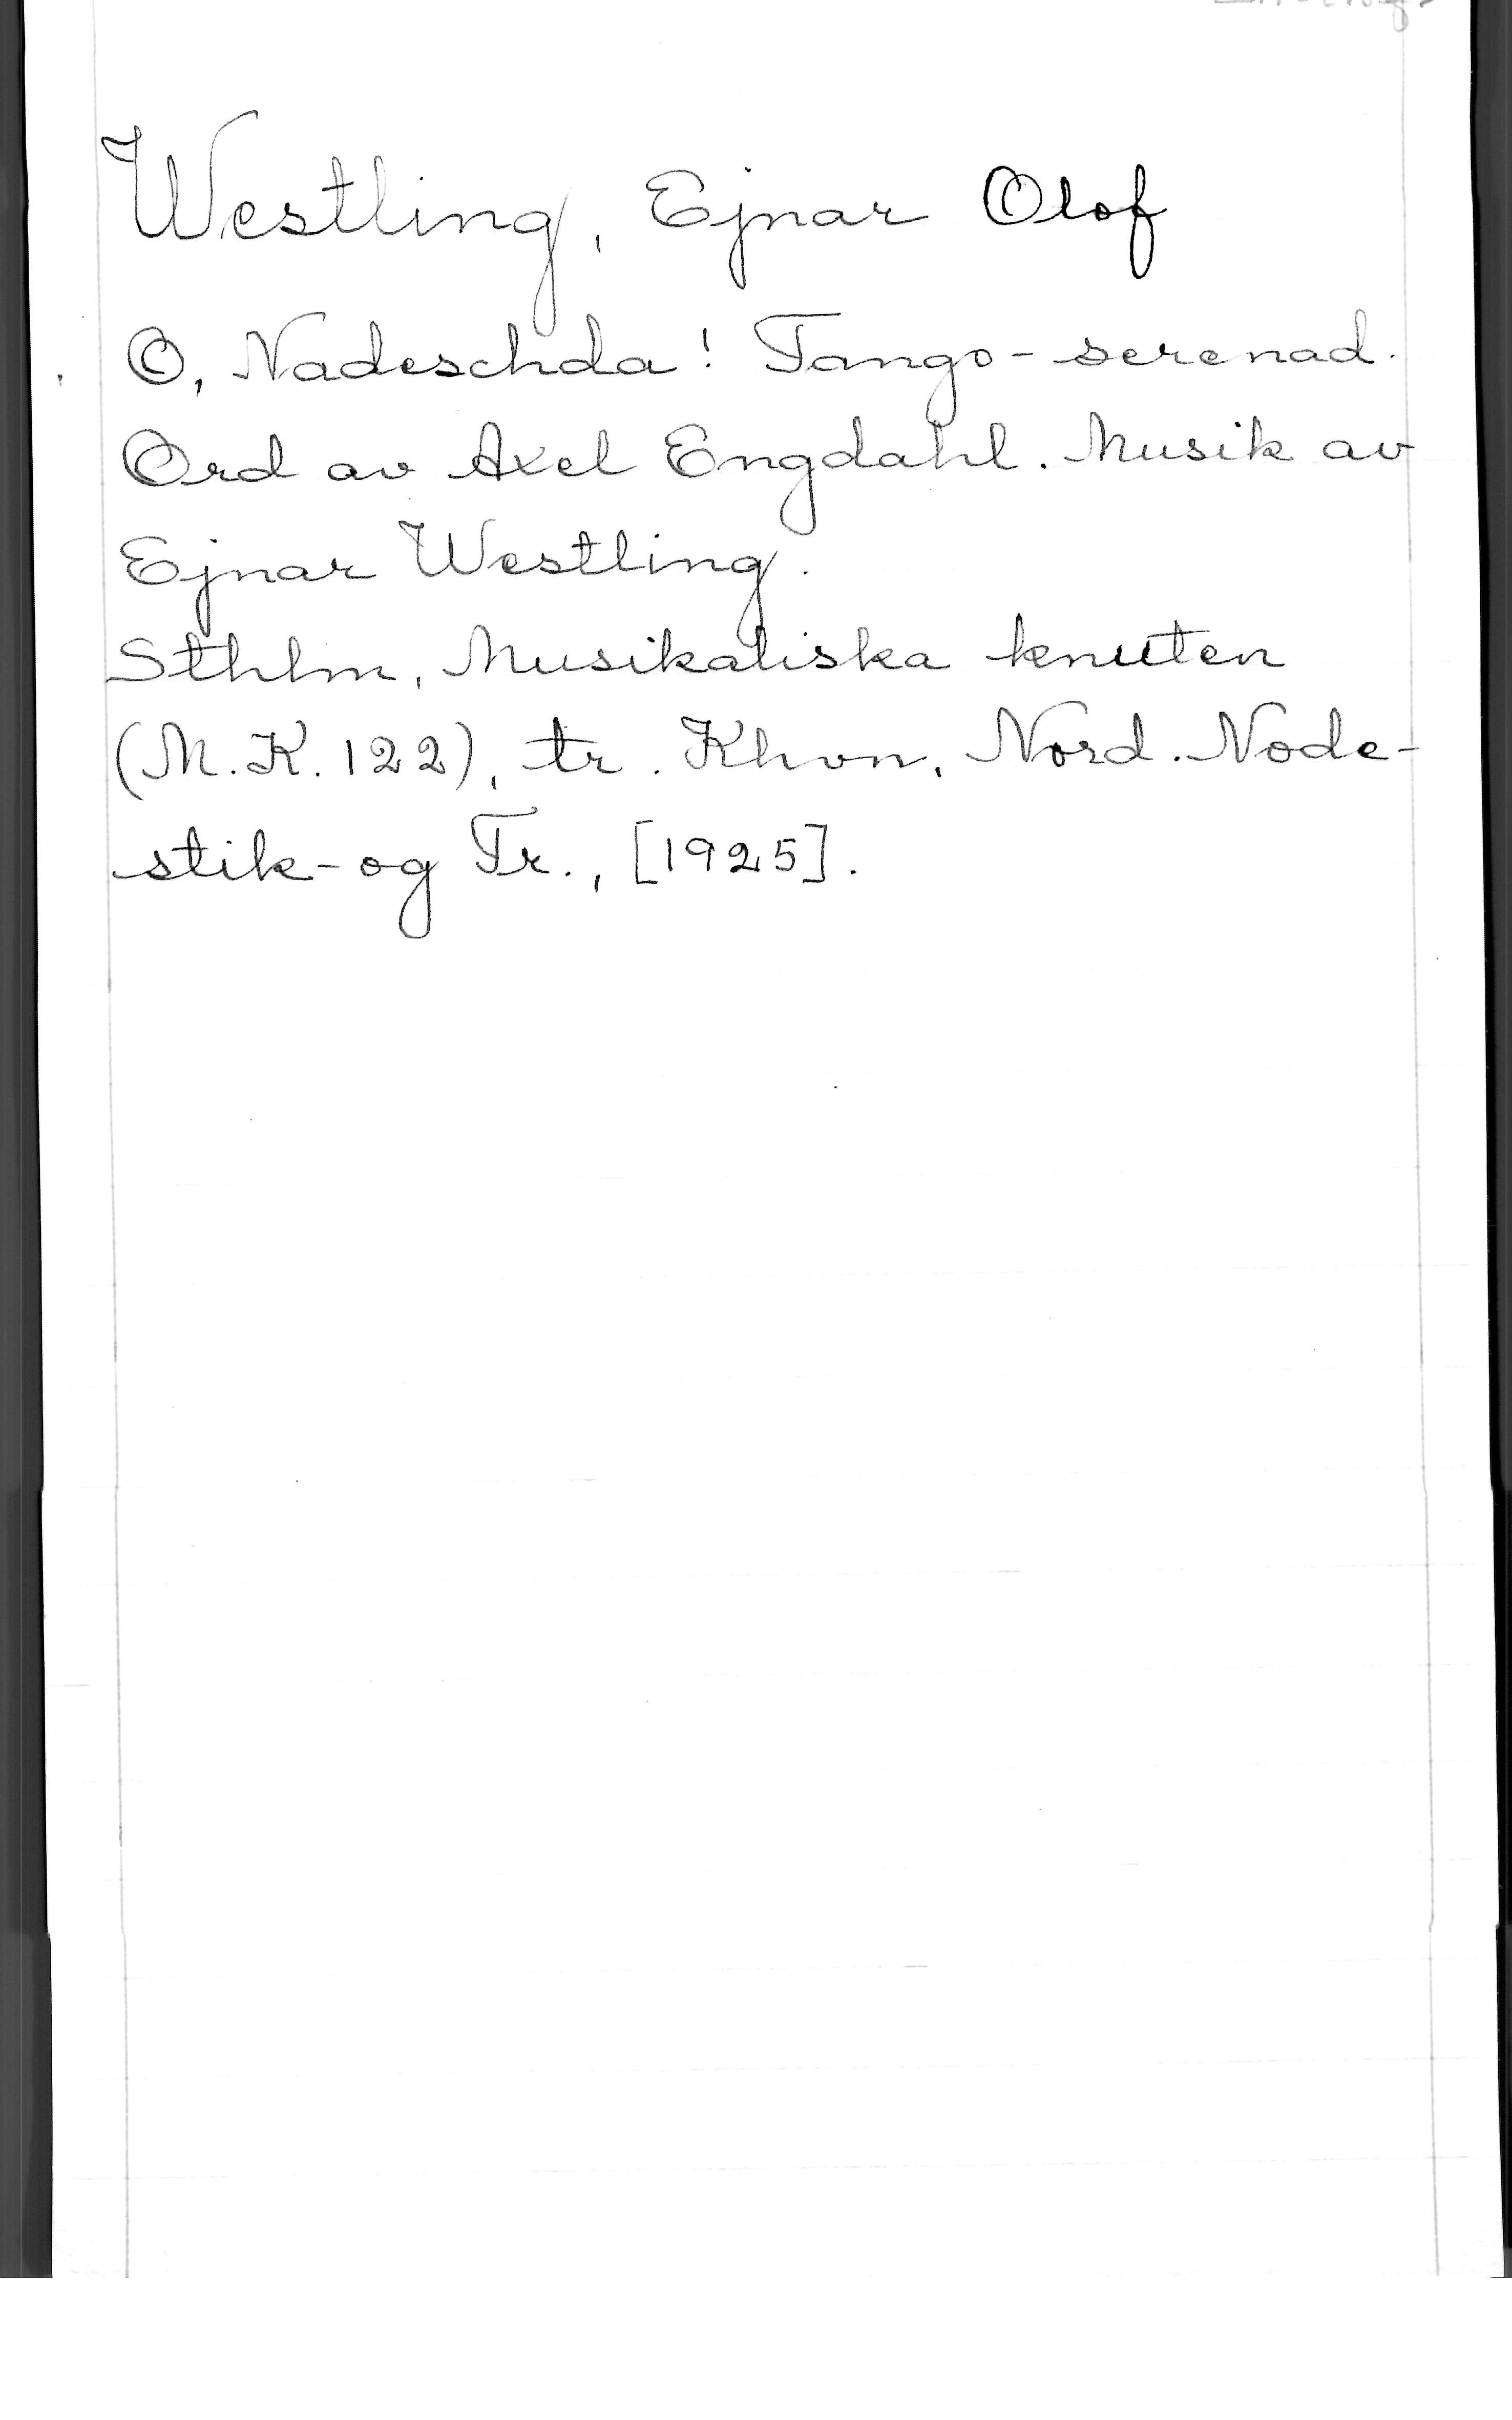 Westling, Ejnar Olof
O, Nadeschda! Tango-serenad.
Ord av Axel Engdahl. Musik av
Ejnar Westling.
Sthlm, Musikaliska knuten
(M.K. 122), tr. Khvn, Nord. Node-
stik- og Tr., [1925].